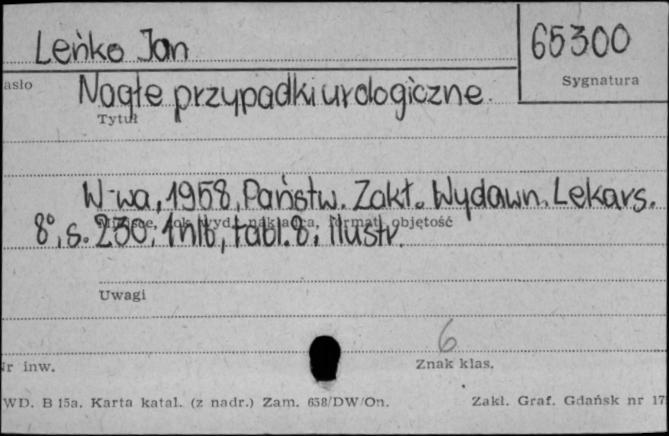 Leńko Jan
65300
asło
Sygnatura
Nagłe przypadki urologiczne.
Tytuł
W-wa, 1958, Państw. Zakł. Wydawn. Lekars.
8°, s. 230, 1 nlb, tabl. 8, ilustr.
Miejsce, rok wyd., nakładca, format, objętość
Uwagi
6
Nr inw.
Znak klas.
WD. B 15a. Karta katal. (z nadr.) Zam. 658/DW/On.
Zakł. Graf. Gdańsk nr 17